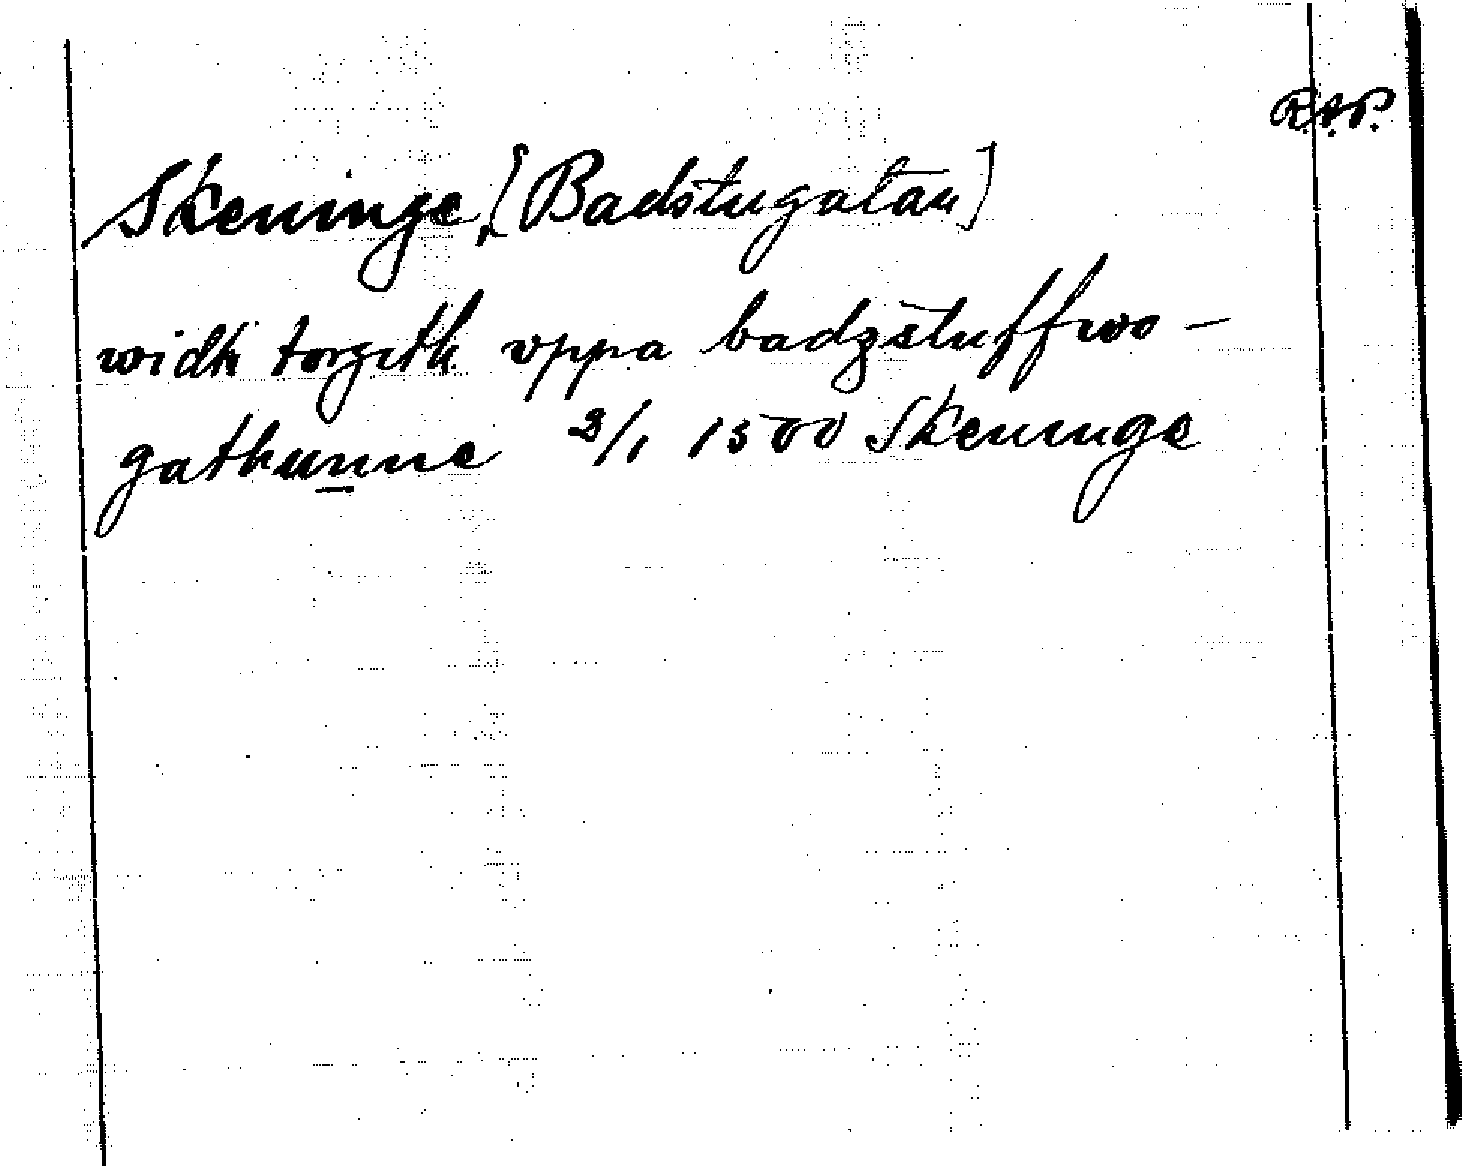 R.A.P.
Skeninge, [Badstugatan]
widh torgith vppa badzstuffwo-
gathunne 2/1 1500 Skeninge